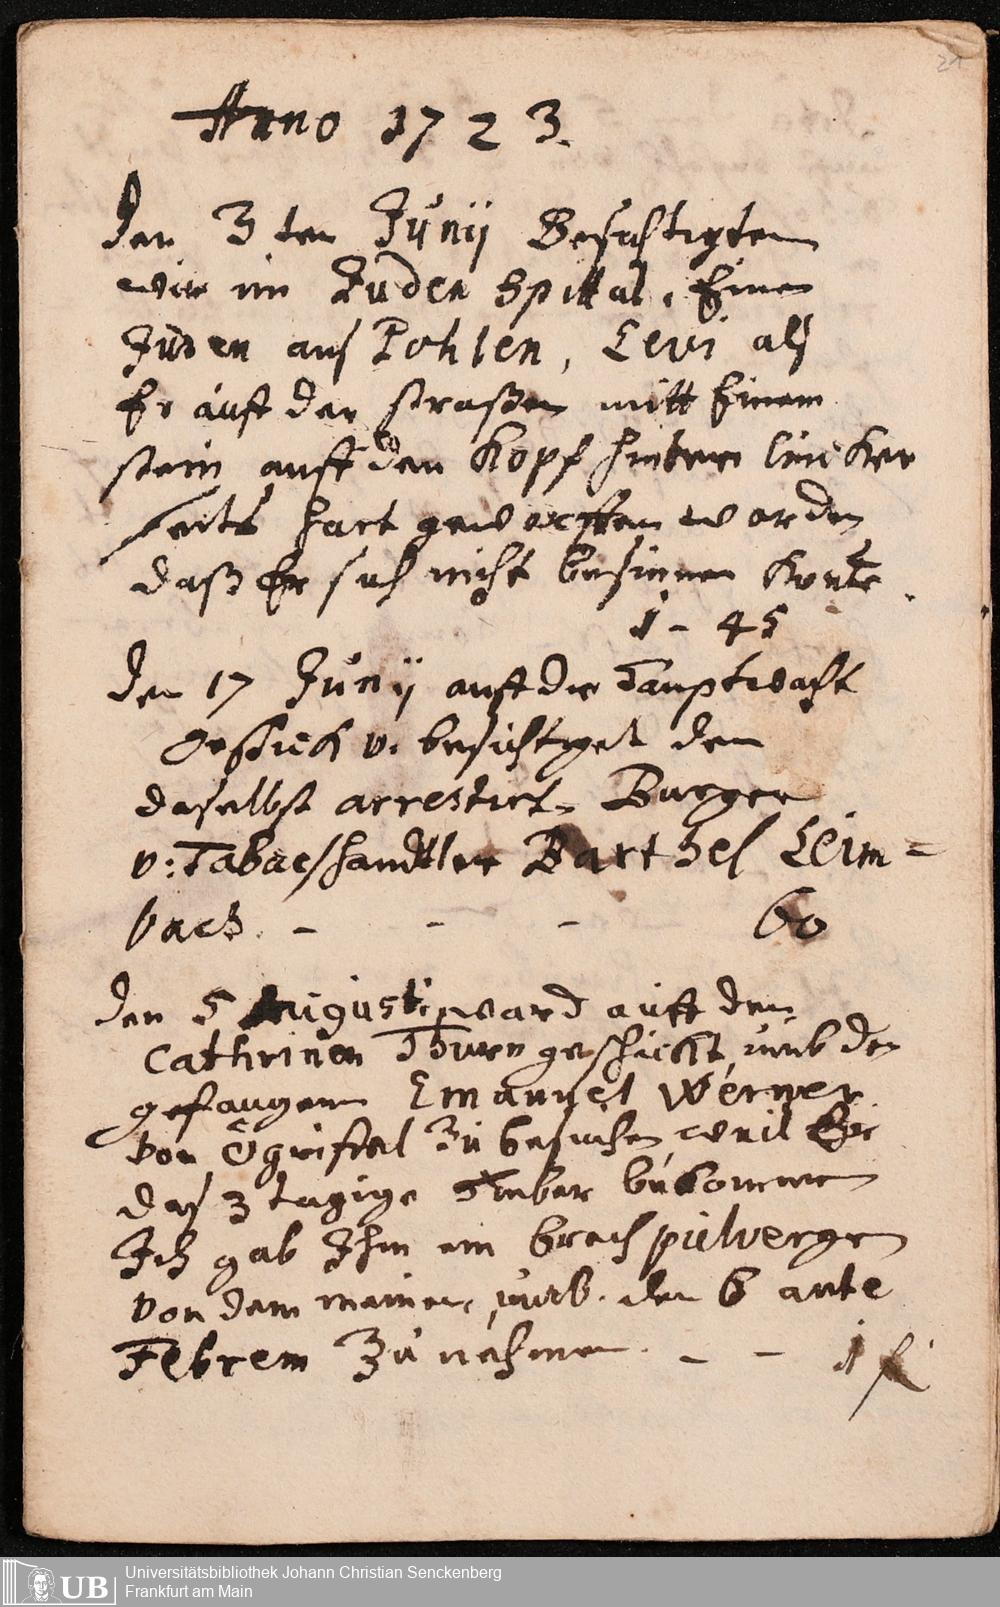 21
Anno 1723.
Den 3 ten Junij Besichtigten
wir im Juden Spittal, Einen
Juden aus Pohlen, Levi als
Er auff der straßen mitt Einem
stein auff den Kopf hinten lincker
seits hart geworffen worden
daß Er sich nicht besinnen konte.
1 - 45
Den 17 Junij auff die Hauptwacht
geschickt v. besichtiget den
daselbst arrestirt. Burger
v: Tabacshandtler Barthel Leim=
bach. - - - 60
Den 5 Augusti ward auff den
Cathrinen Thurn geschickt, umb den
gefangenen Emanuel Werner
von zu besuchen, weil Er
das 3 tagige Fieber bekommen
Ich gab Ihm ein brech pulvergen
von dem meinen, den 6 ante
Febrem zu nehmen. - - 1 f
UB
Universitätsbibliothek Johann Christian Senckenberg
Frankfurt am Main